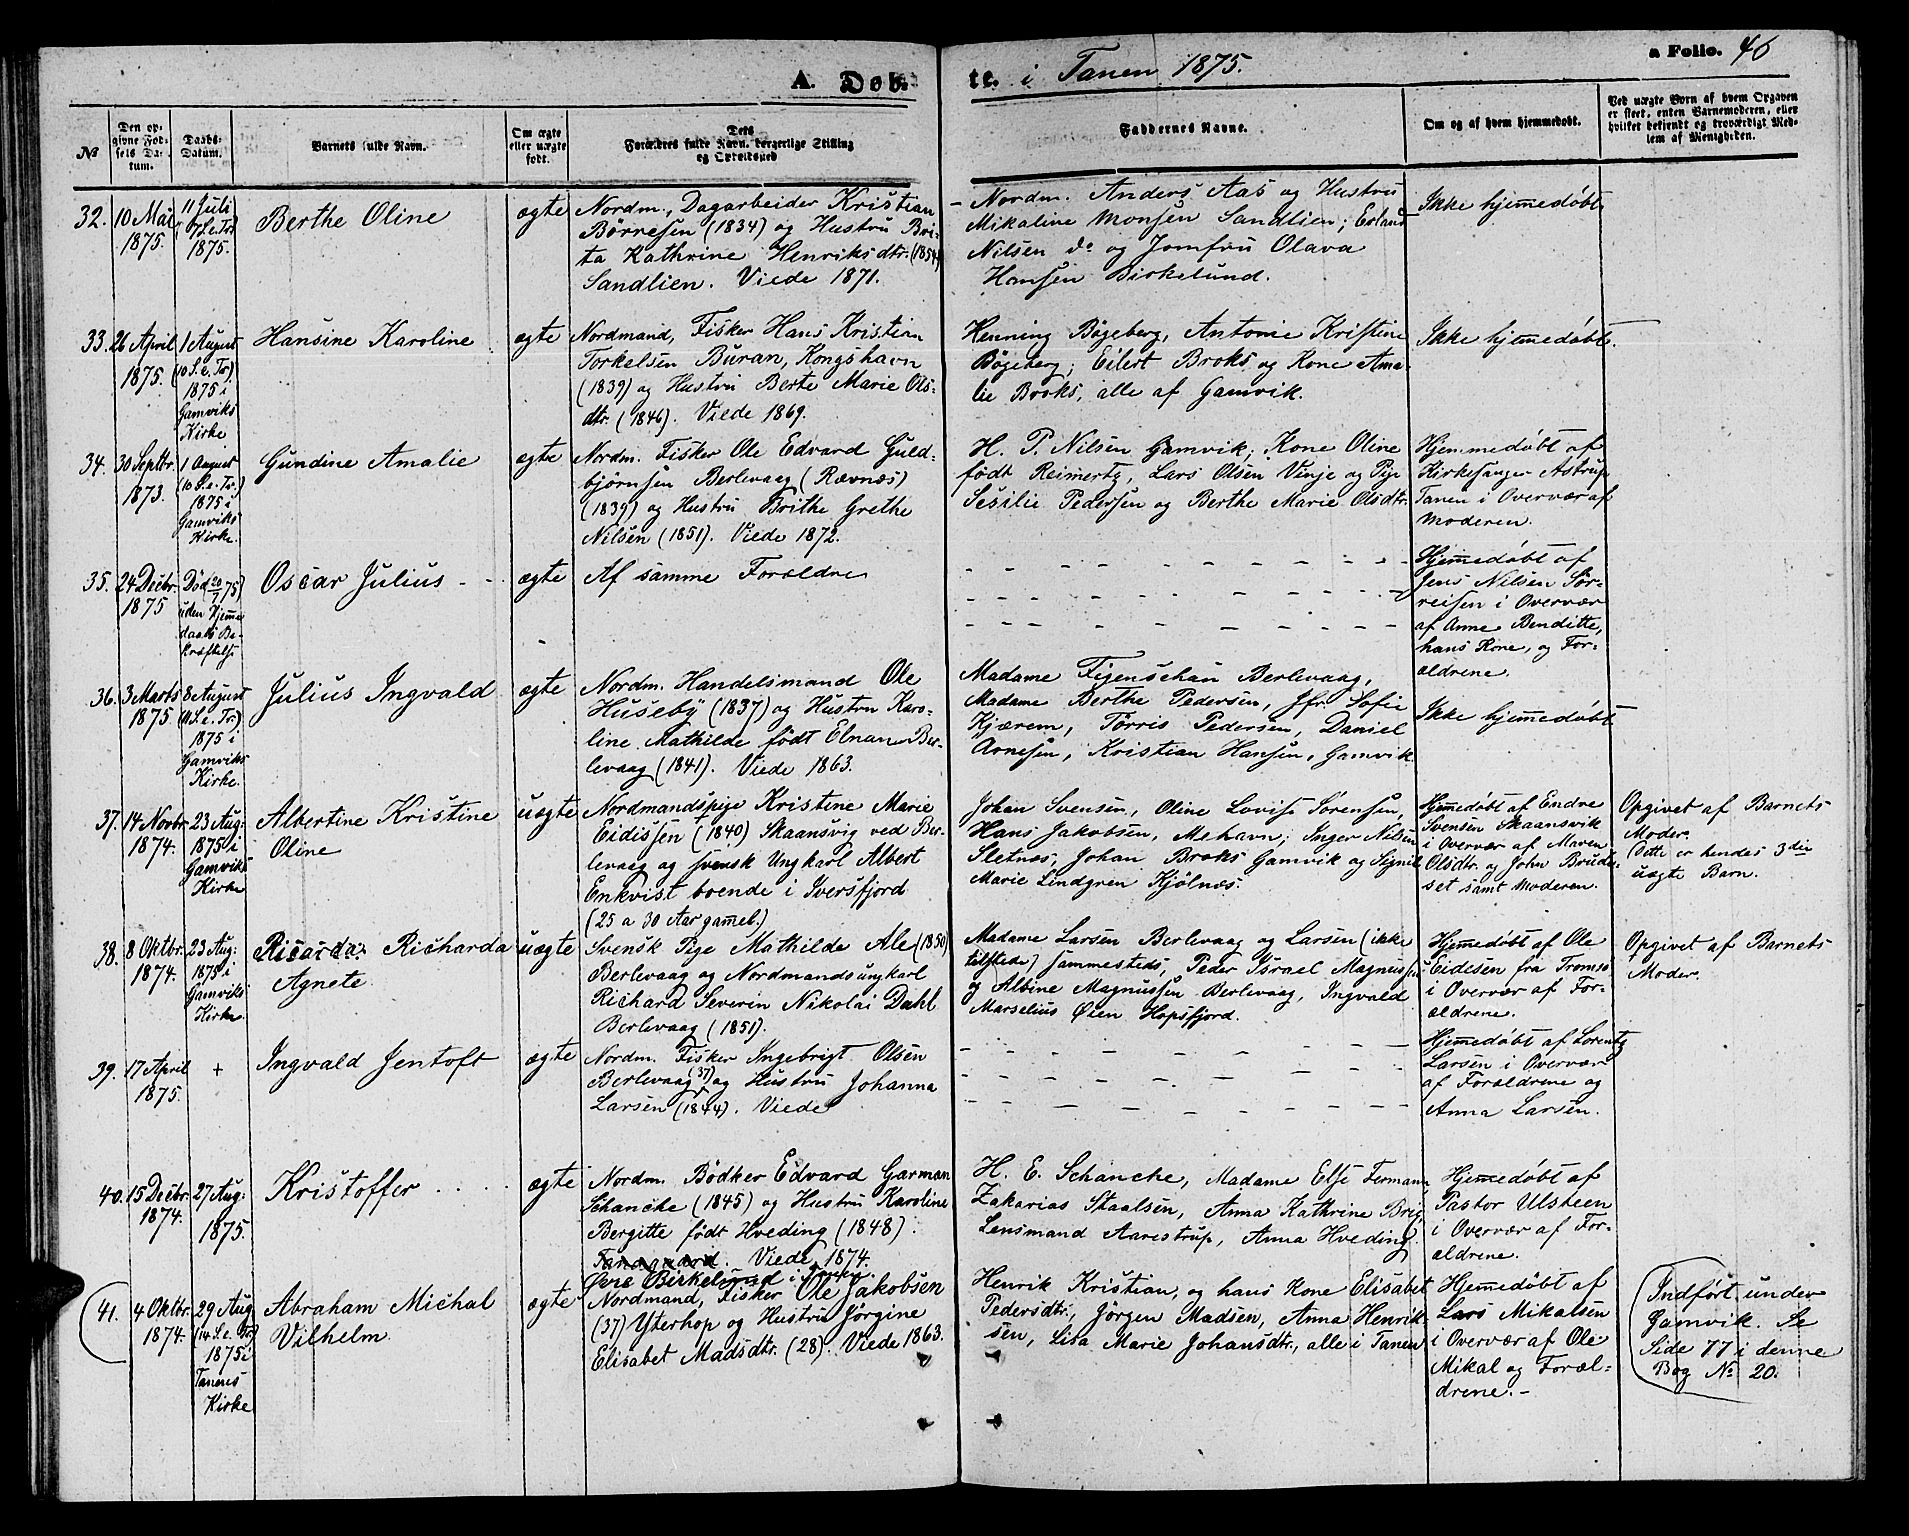 A. Døb-
te. i Tanen 1875.
a Folio. 46
№
Den opgivne Fødsels Datum.
Daabs-Datum.
Barnets fulde Navn.
Om ægte eller uægte født.
Dets Forældres fulde Navn, borgerlige Stilling og Opholdssted
Faddernes Navne.
Om og af hvem hjemmedøbt.
Ved uægte Børn af hvem Opgaven er skeet, enten Barnemoderen, eller hvilket bekjendt og troværdigt Medlem af Menigheden.
32. 10 Mai 1875.
11 Juli (7 S. e. Tr.) 1875.
Berthe Oline
ægte
Nordm., Dagarbeider Kristian
Börresen (1834) og Hustru Bri-
ta Kathrine Henriksdtr. (1854)
Sandlien. Viede 1871.
- Nordm. Anders Aas og Hustru
Mikaline Monsen Sandlien; Erland
Nilsen do og Jomfru Olava
Hansen Birkelund.
Ikke hjemmedøbt
33. 26 April 1875.
1 August (10 S. e. Tr.) 1875 i Gamviks Kirke
Hansine Karoline
ægte
Nordmand, Fisker Hans Kristian
Torkelsen Buran, Kongshavn
(1839) og Hustru Berte Marie Ols-
dtr. (1846). Viede 1869.
Henning Bøgeberg, Antonie Kristine
Bøgeberg; Eilert Broks og Kone Ama-
lie Broks, alle af Gamvik.
Ikke hjemmedøbt.
34. 30 Septbr. 1873.
1 August (10 S. e. Tr.) 1875 i Gamviks Kirke.
Gundine Amalie
ægte
Nordm. Fisker Ole Edvard Guld-
bjørnsen Berlevaag (Rævnæs)
(1839) og Hustru Brithe Grethe
Nilsen (1851). Viede 1872.
H. P. Nilsen Gamvik, Kone Oline
født Reimertz, Lars Olsen Vinje og Pige
Sesilie Pedersen og Berthe Marie Olsdtr.
Hjemmedøbt af
Kirkesanger Astrup
Tanen i Overvær af
Moderen.
35. 24 Decbr. 1875
Död (20/7 75) uden Hjemmedaabs Bekræftelse
Oscar Julius
ægte
Af samme Forældre
Hjemmedøbt af
Jens Nilsen Sör-
reisen i Overvær
af Anne Benditte,
hans Kone, og For-
ældrene.
36. 3 Marts 1875
8 August (11 S. e. Tr.) 1875 i Gamviks Kirke.
Julius Ingvald
ægte
Nordm. Handelsmand Ole
Huseby (1837) og Hustru Karo-
line Mathilde født Elnan Ber-
levaag (1841). Viede 1863.
Madame Figenschau Berlevaag,
Madame Berthe Pedersen, Jfr. Sofie
Kjærem, Tørris Pedersen, Daniel
Arnesen, Kristian Hansen, Gamvik
Ikke hjemmedøbt
37. 14 Novbr. 1874.
23 Aug: 1875 i Gamviks Kirke
Albertine Kristine
Oline
uægte
Nordmandspige Kristine Marie
Eidissen (1840) Skaansvig ved Ber-
levaag og svensk Ungkarl Albert
Enkvist boende i Iversfjord
(25 a 30 Aar gamel.)
Johan Svensen, Oline Lovise Sörensen,
Hans Jakobsen, Mehavn; Inger Nilsen
Sletnæs, Johan Broks Gamvik og Signil
Marie Lindgren Kjölnæs.
Hjemmedøbt af Endre
Svensen Skaansvik
i Overvær af Maren
Olsdtr. og John Brude-
set samt Moderen.
Opgivet af Barnets
Moder.
Dette er hendes 3die
uægte Barn.
38. 8 Oktbr. 1874.
23 Aug: 1875 i Gamviks Kirke.
Ricarda: Richarda
Agnete
uægte
Svensk Pige Mathilde Ale (1850)
Berlevaag og Nordmandsungkarl
Richard Severin Nikolai Dahl
Berlevaag (1851).
Madame Larsen Berlevaag og Larsen (ikke
tilstede) sammesteds, Peder Israel Magnussen
og Albine Magnussen Berlevaag, Ingvald
Marselius Øien Hopsfjord.
Hjemmedøbt af Ole
Eidesen fra Tromsö
i Overvær af For-
ældrene.
Opgivet af Barnets
Moder.
39. 17 April 1875.
+
Ingvald Jentoft
ægte
Nordm. Fisker Ingebrigt Olsen
Berlevaag (37) og Hustru Johanna
Larsen (1844). Viede
Hjemmedøbt af Lorentz
Larsen i Overvær
af Forældrene og
Anna Larsen.
40. 15 Decbr. 1874.
27 Aug: 1875.
Kristoffer
ægte
Nordm. Bödker Edvard Garman
Schancke (1845) og Hustru Karoline
Bergitte født Hveding (1848).
Tanagaard. Viede 1874.
Øvre Birkelund i Tanen.
H. E. Schancke, Madame Else Fermann,
Zakarias Staalsen, Anna Kathrine Brig
Lensmand Aarestrup, Anna Hveding
Hjemmedøbt af
Pastor Ulsteen
i Overvær af For-
ældrene.
41. 4 Oktbr. 1874.
29 Aug (14 S. e. Tr) 1875 i Tanens Kirke
Abraham Michal
Vilhelm.
ægte
Nordmand, Fisker Ole Jakobsen
(37) Yterhop og Hustru Jørgine
Elisabet Madsdtr. (28). Viede 1863.
Henrik Kristian, og hans Kone Elisabet
Pedersdtr., Jørgen Madsen, Anna Henrik-
sen, Lisa Marie Johansdtr., alle i Tanen
Hjemedøbt af
Lars Mikalsen
i Overvær af Ole
Mikal og Foræl-
drene. -
Indført under
Gamvik. Se
Side 77 i denne
Bog № 20.